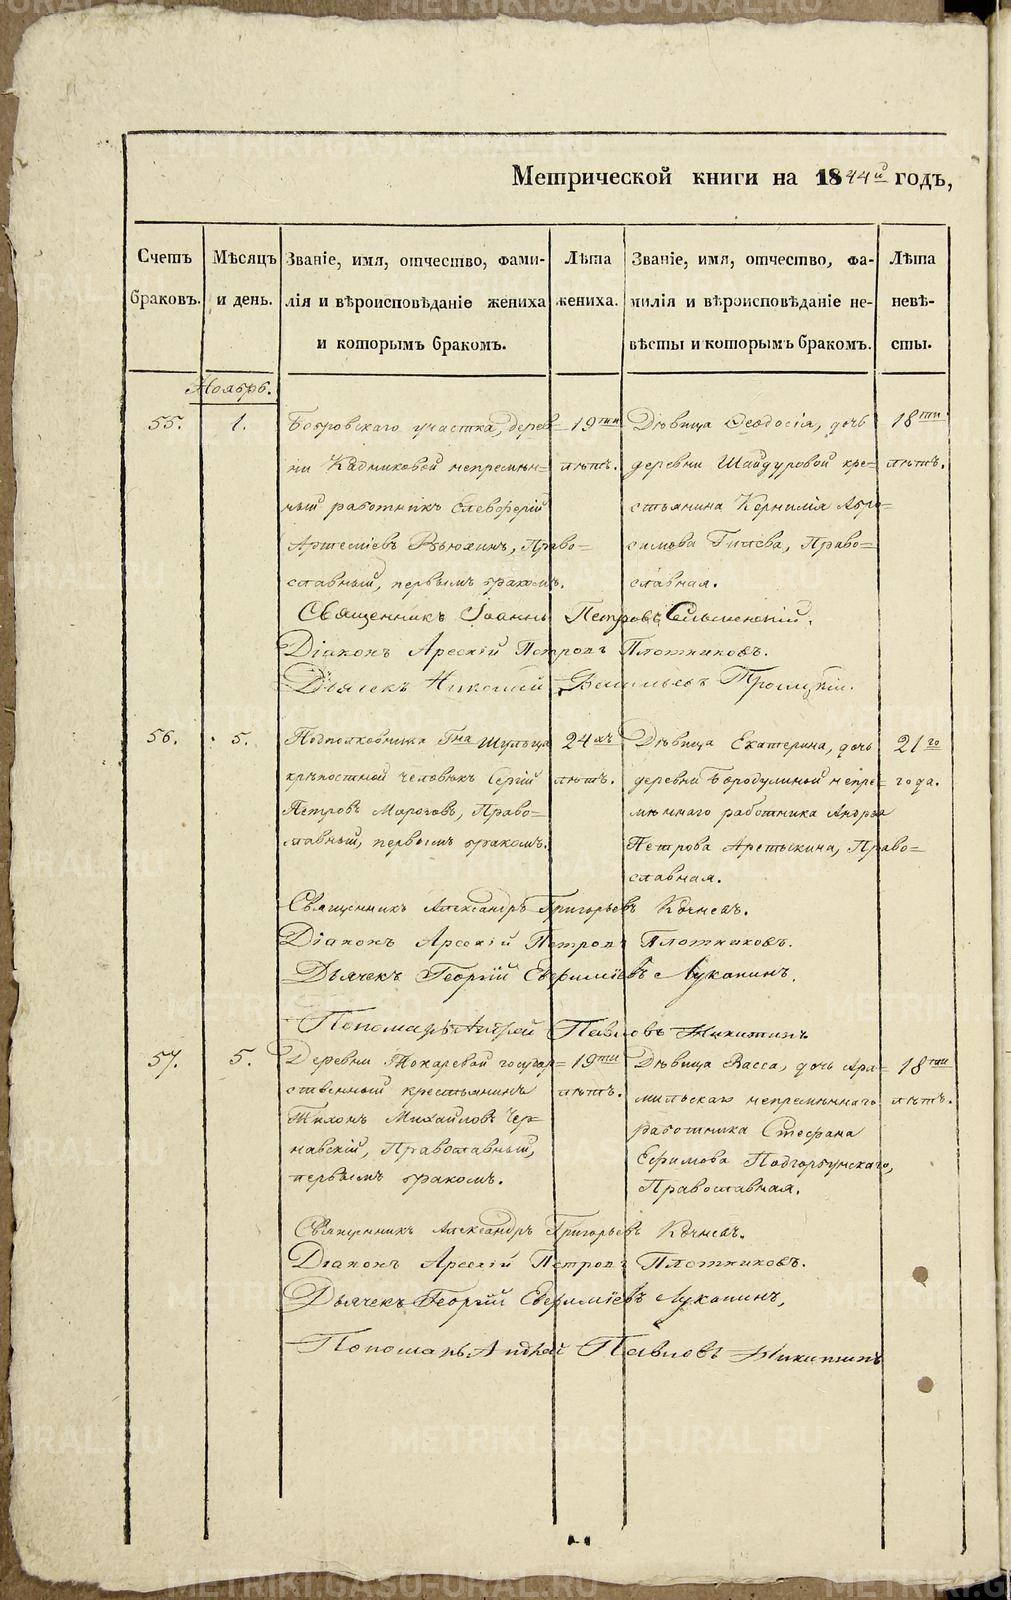 Метрической книги на 1844й годъ,
Счетъ браковъ.
Мѣсяцъ и день.
Званіе, имя, отчество, фами-
лія и вѣроисповѣданіе жениха
и которымъ бракомъ.
Лѣта жениха.
Званіе, имя, отчество, фа-
милія и вѣроисповѣданіе не-
вѣсты и которымъ бракомъ.
Лѣта невѣ-
сты.
Ноябрь.
55.
1.
Бобровскаго участка, дерев=
ни Кадниковой непремѣн=
ный работникъ Елевферій
Артеміевъ Вьюхинъ, Право=
славный, первымъ бракомъ.
19ти
лѣтъ.
Дѣвица Ѳеодосія, дочь
деревни Шайдуровой кре=
стьянина Корнилія Абро=
симова Гилева, Право=
славная.
18ти
лѣтъ.
Священникъ Іоаннъ Петровъ
Діаконъ Арсеній Петровъ Плотниковъ.
Дьячекъ Николай Васильевъ Троицкій.
56.
5.
Подполковника Гна Шульца
крѣпостной человѣкъ Сергій
Петровъ Морозовъ, Право=
славный, первымъ бракомъ.
24хъ
лѣтъ.
Дѣвица Екатерина, дочь
деревни Бородулиной непре=
мѣннаго работника Андрея
Петрова Аретыкина, Право=
славная.
21го
года.
Священникъ Александръ Григорьевъ Кочневъ.
Діаконъ Арсеній Петровъ Плотниковъ.
Дьячекъ Георгій Евфиміевъ Луканинъ.
Пономарь Андрей Павловъ Никитинъ
57.
5.
Деревни Токаревой государ=
ственный крестьянинъ
Тихонъ Михайловъ Чер=
навскій, Православный,
первымъ бракомъ.
19ти
лѣтъ.
Дѣвица Васса, дочь Ара=
мильскаго непремѣннаго
работника Стефана
Ефимова Подгорбунскаго,
Православная.
18ти
лѣтъ.
Священникъ Александръ Григорьевъ Кочневъ.
Діаконъ Арсеній Петровъ Плотниковъ.
Дьячекъ Георгій Евфиміевъ Луканинъ,
Пономарь Андрей Павловъ Никитинъ
METRIKI.GASU-URAL.RU